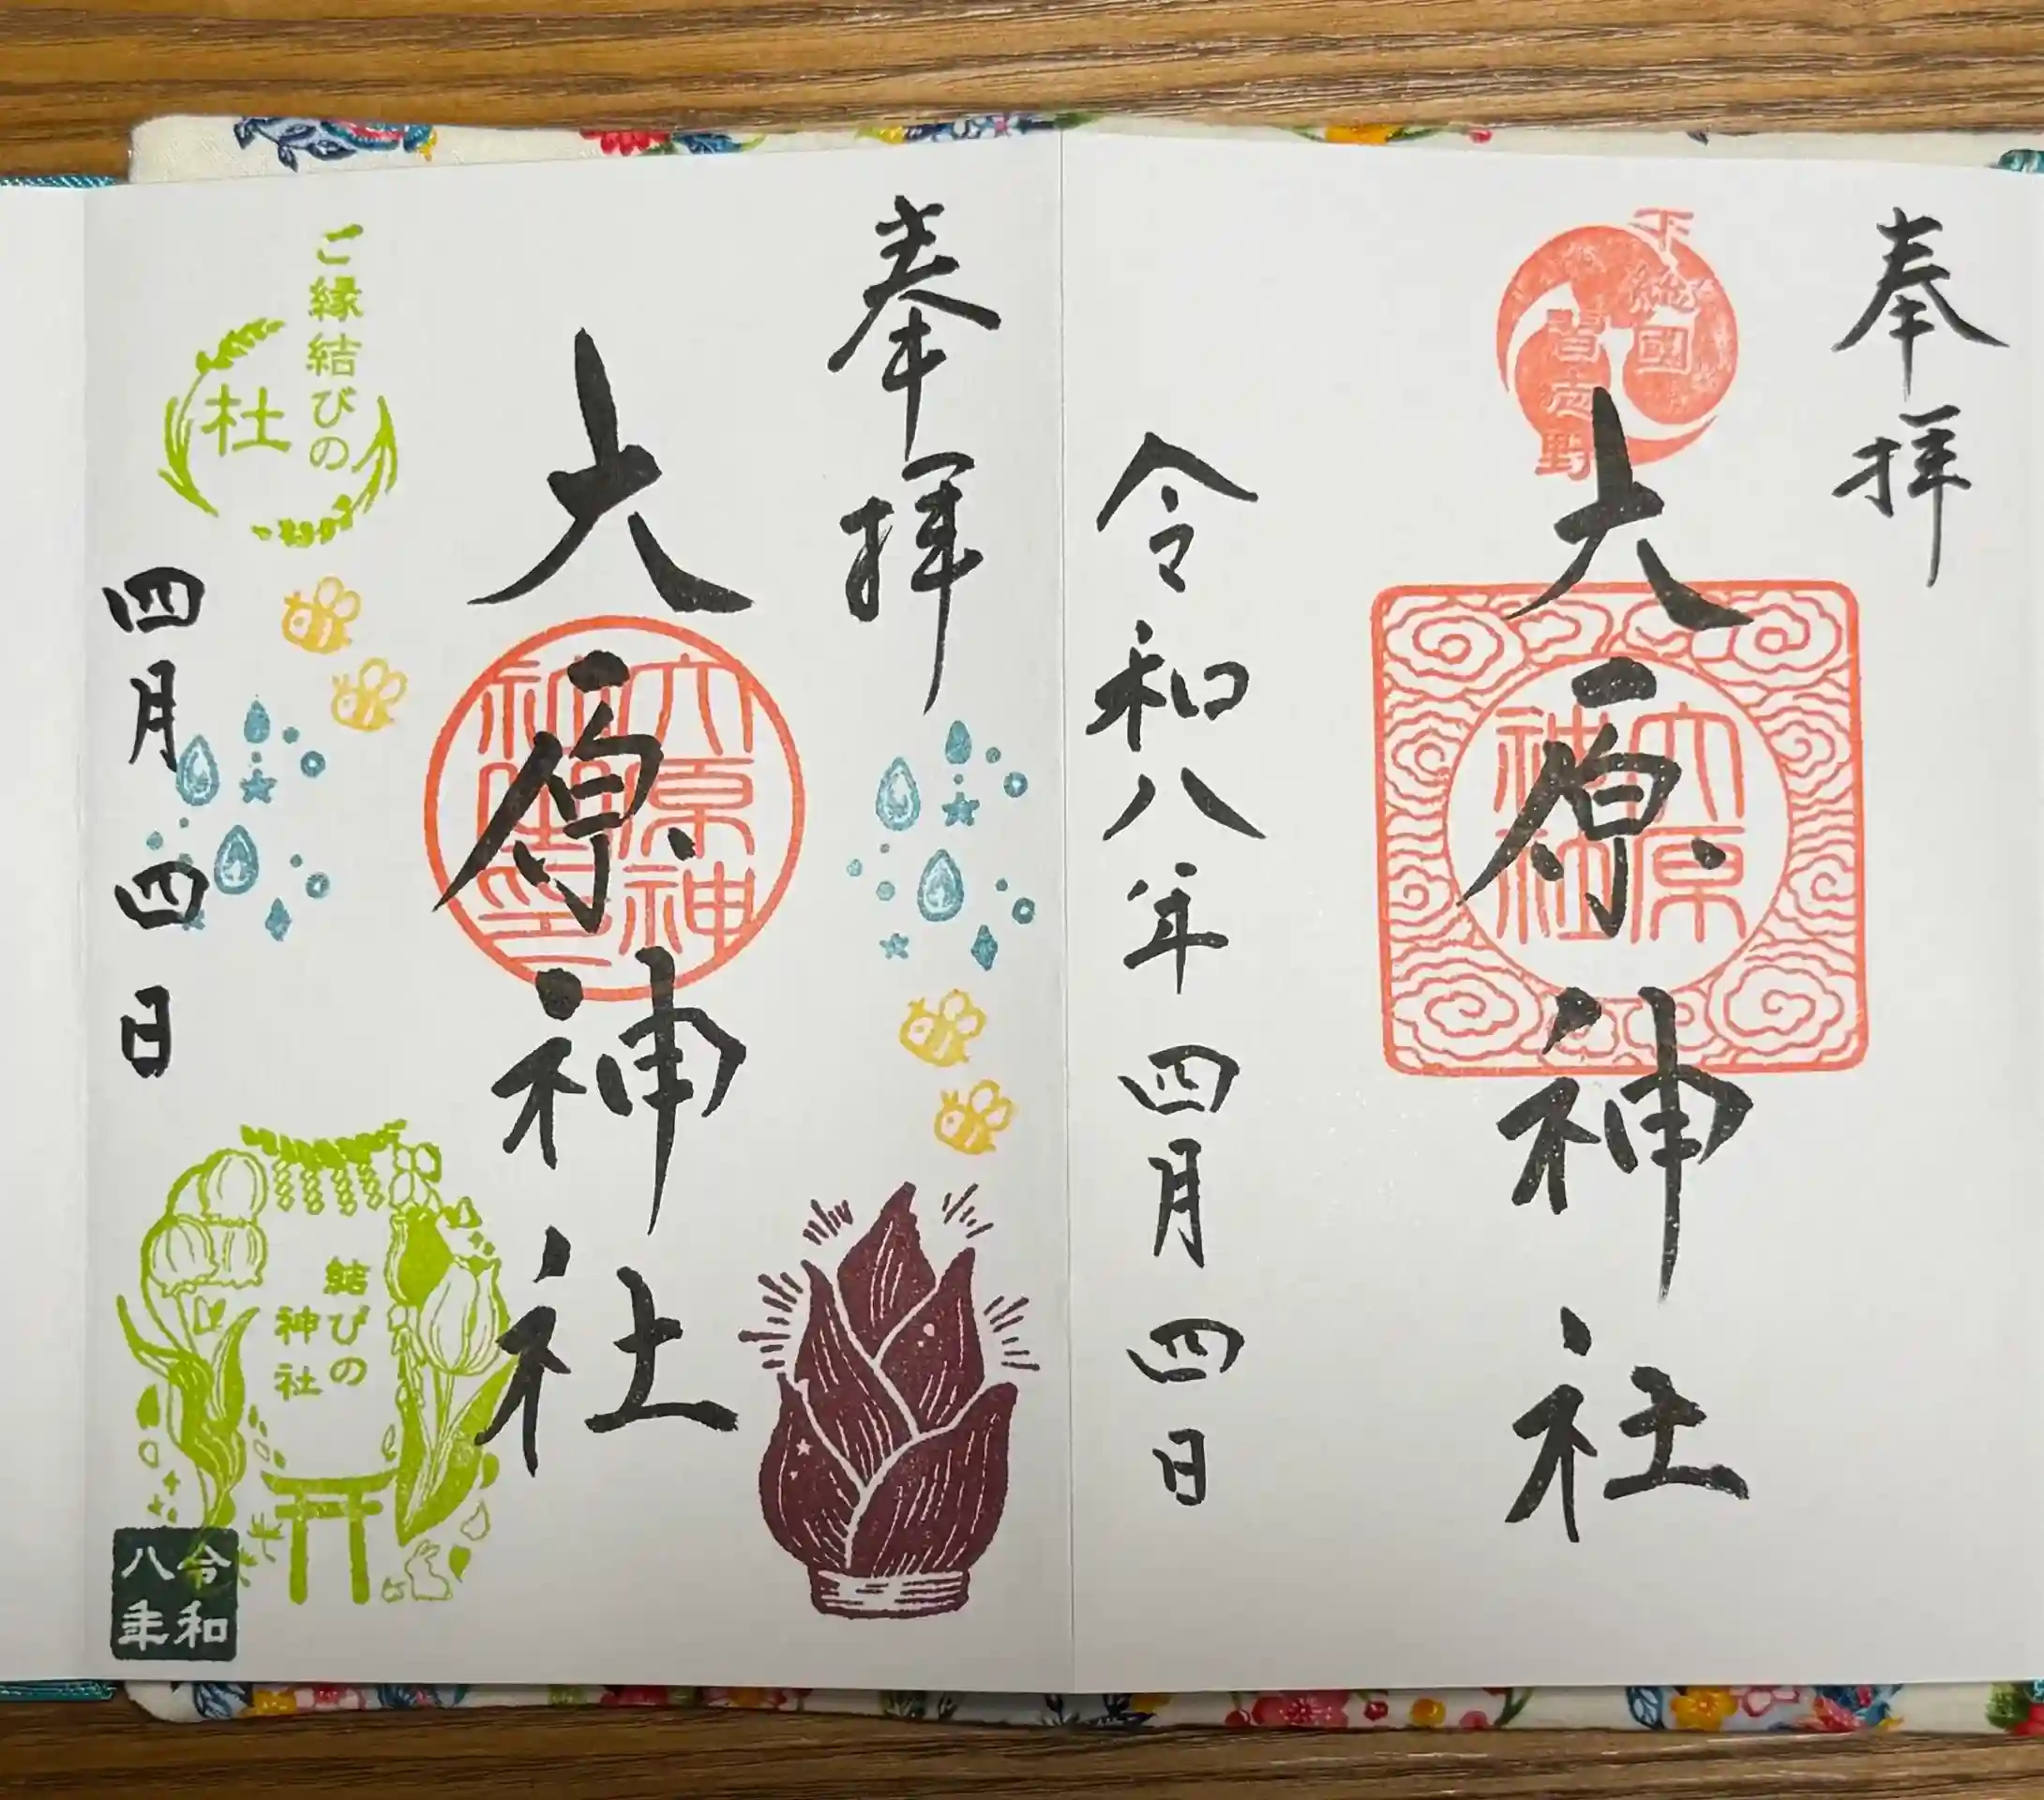 奉拝
下総國
習志野
大原神社
大原
神社
令和八年四月四日
奉拝
大原神社
大原神
社印
ご縁結びの
杜
四月四日
結びの
神社
令和
八年